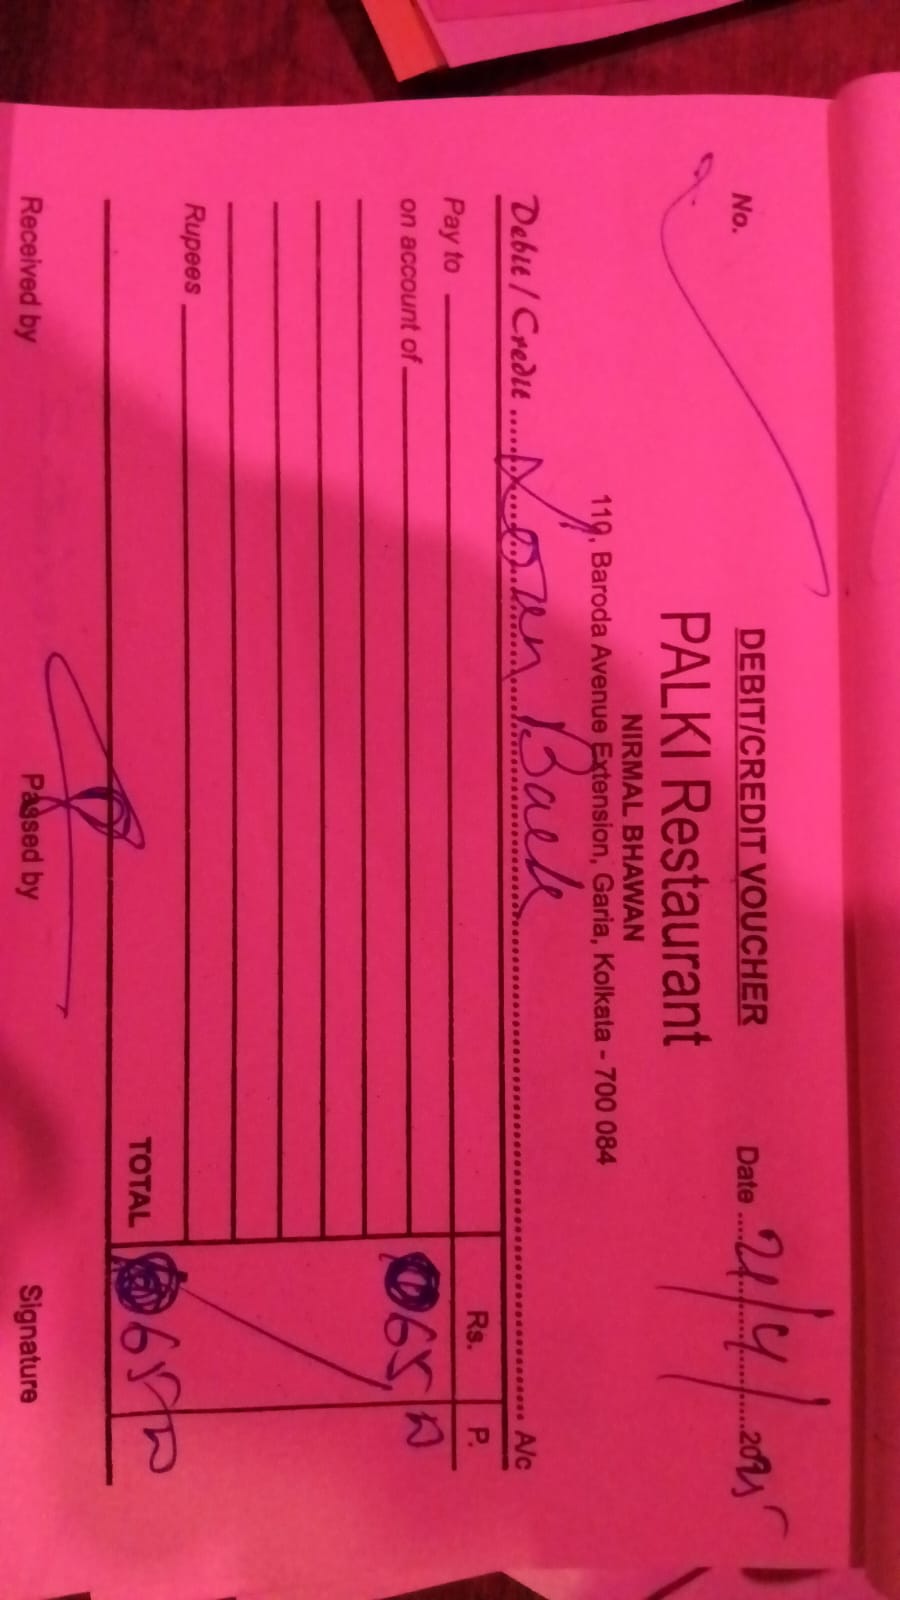 No.
DEBIT/CREDIT VOUCHER
Date ........ 21/4/2025
PALKI Restaurant
NIRMAL BHAWAN
119, Baroda Avenue Extension, Garia, Kolkata - 700 084
Debit / Credit ........ Back ........ A/c
Rs. P.
Pay to
on account of 65
Rupees
TOTAL 65
Received by Passed by Signature